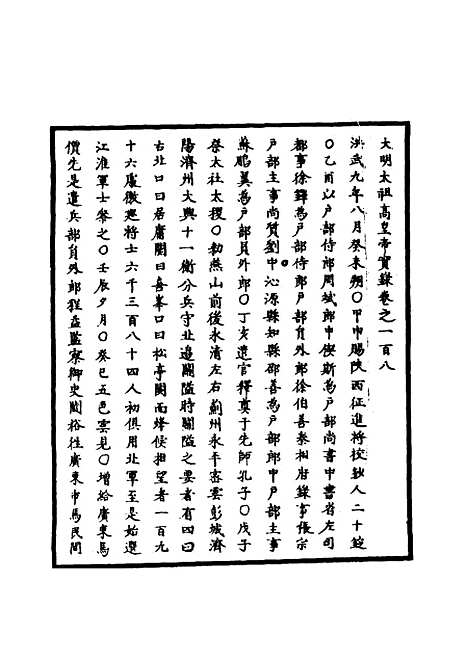 大明太祖高皇帝實錄卷之一百八
洪武九年八月癸未朔○甲申賜陝西征進將校鈔人二十錠
○乙酉以戶部侍郎周斌郎中偰斯為戶部尚書中書省左司
都事徐鐸為戶部侍郎戶部員外郎徐伯善參相府錄事張宗
戶部主事尚質劉中沁源縣知縣邵善為戶部郎中戶部主事
蘇鵬翼為戶部員外郎○丁亥遣官釋奠于先師孔子○戊子
祭太社太稷○勑燕山前後永清左右薊州永平密雲彭城濟
陽濟州大興十一衛分兵守北邊關隘時關隘之要者有四曰
古北口曰居庸關曰喜峯口曰松亭關而烽堠相望者一百九
十六處徼巡將士六千三百八十四人初俱用北軍至是始選
江淮軍士參之○壬辰夕月○癸巳五色雲見○增給廣東馬
價先是遣兵部員外郎程孟監察御史閻裕往廣東市馬民間